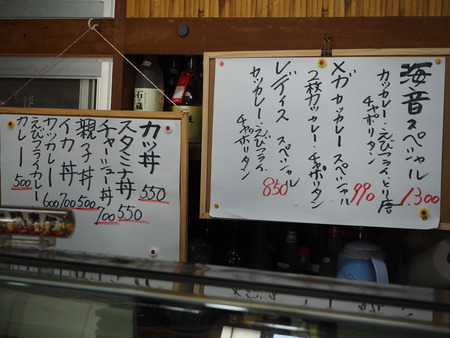 海音スペシャル
カツカレー・えびフライ・とり唐
チャポリタン 1,300
メガカツカレースペシャル
2枚カツカレー・チャポリタン 990
レディススペシャル
カツカレー・えびフライ
チャポリタン 850
カツ丼 550
スタミナ丼 550
チャーシュー丼 700
親子丼 500
イカ丼 700
カツカレー 600
えびフライカレー
カレー 500